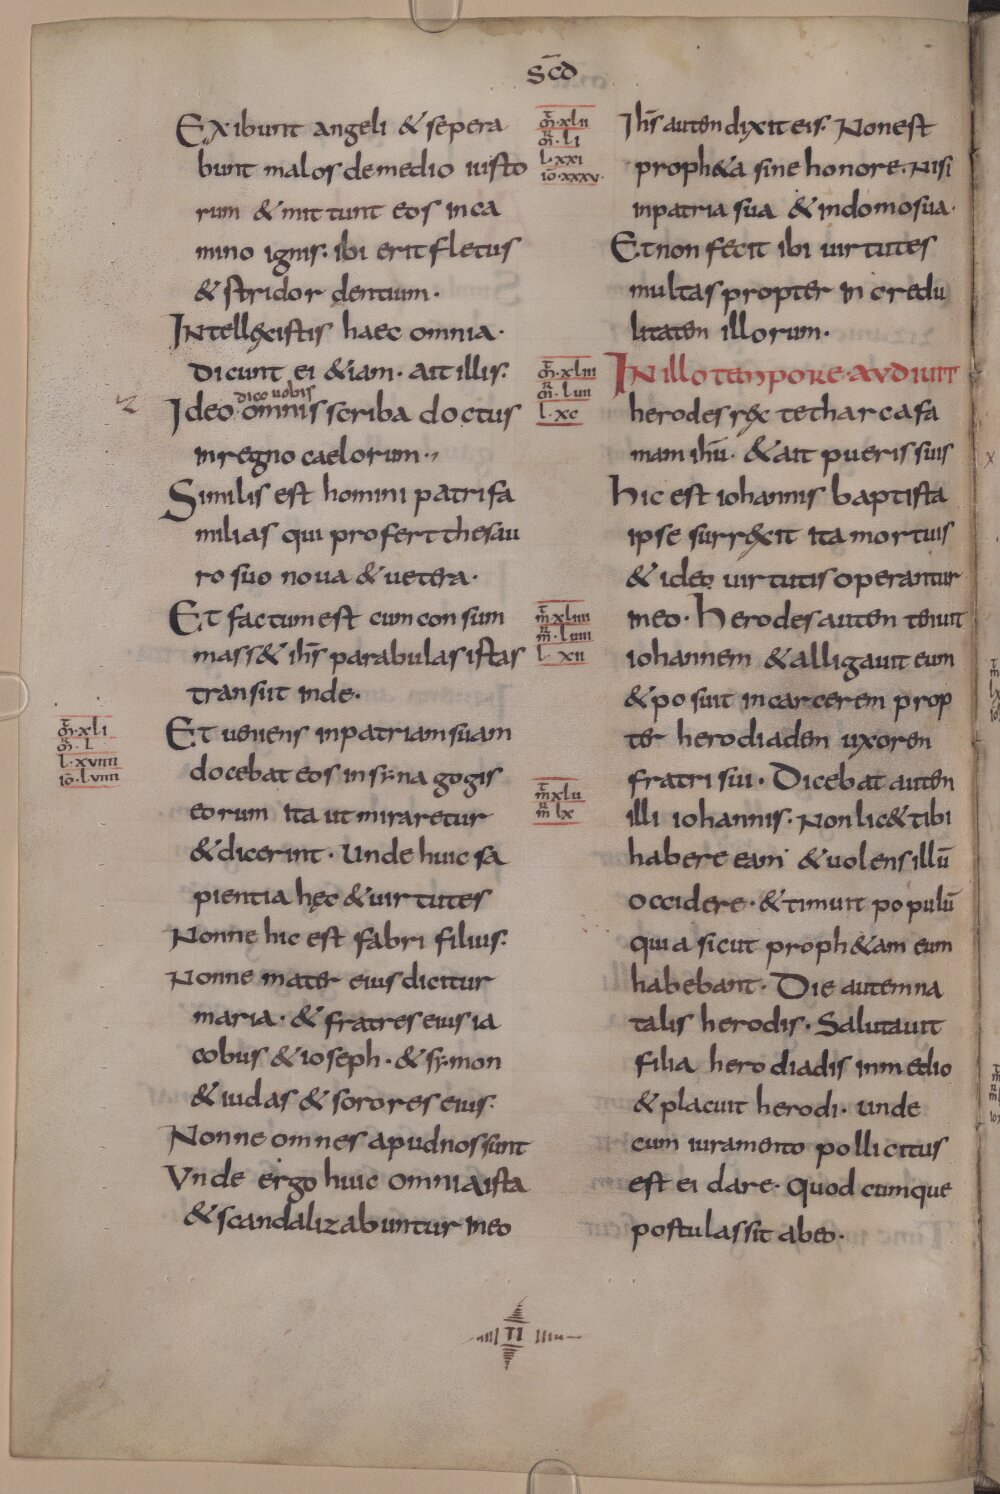 sc̄d
Exibunt angeli & sepera
bunt malos demedio iusto
rum & mittunt eos inca
mino ignis. ibi erit fletus
& stridor dentium.
Intellexistis haec omnia.
Dicunt ei &iam. ait illis.
dico uobis
Ideo omnis scriba doctus
inregno caelorum.
Similis est homini patrifa
milias qui profert thesau
ro suo noua & uetera.
Et factumest cumconsum
mass& ih̄s parabulas istas
transiit inde.
m̄.xli
m̄.l
l.xviiii
iō.lviiii
Et ueniens inpatriamsuam
docebat eos insynagogis
eorum ita ut miraretur
& dicerint. Unde huic sa
pientia hęc & uirtutes
Nonne hic est fabri filius.
Nonne mater eius dicitur
maria. & fratres eius ia
cobus & ioseph. & symon
& iudas & sorores eius.
Nonne omnes apudnos sunt
Vnde ergo huic omnia ista
& scandalizabuntur ineo
m̄.xlii
m̄.li
l.xxi
iō.xxxv.
Ih̄s autem dixit eis. Nonest
proph&a sine honore. Nisi
inpatria sua & indomosua.
Et non fecit ibi uirtutes
multas propter incredu
litatem illorum.
m̄.xliii
m̄.lvii
l.xc
In illo tempore. audiuit
herodes rex tetharca fa
mam ih̄u. & ait pueris suis
hic est iohannis baptista
ipse surrexit ita mortuis
& ideo uirtutis operantur
m̄xliiii
m̄.lviii
l.xii
ineo. Herodes autem tenuit
iohannem & alligauit eum
& posuit incarcerem prop
ter herodiadem uxorem
fratri sui. Dicebat autem
m̄xlv
m̄ lx
illi iohannis. Non lic& tibi
habere eam & uolens illū
occidere. & timuit populū
quia sicut proph&am eum
habebant. Die autem na
talis herodis. Salutauit
filia herodiadis inmedio
& placuit herodi. unde
cum iuramento pollicitus
est ei dare. Quod cumque
postulassit abeo.
TI